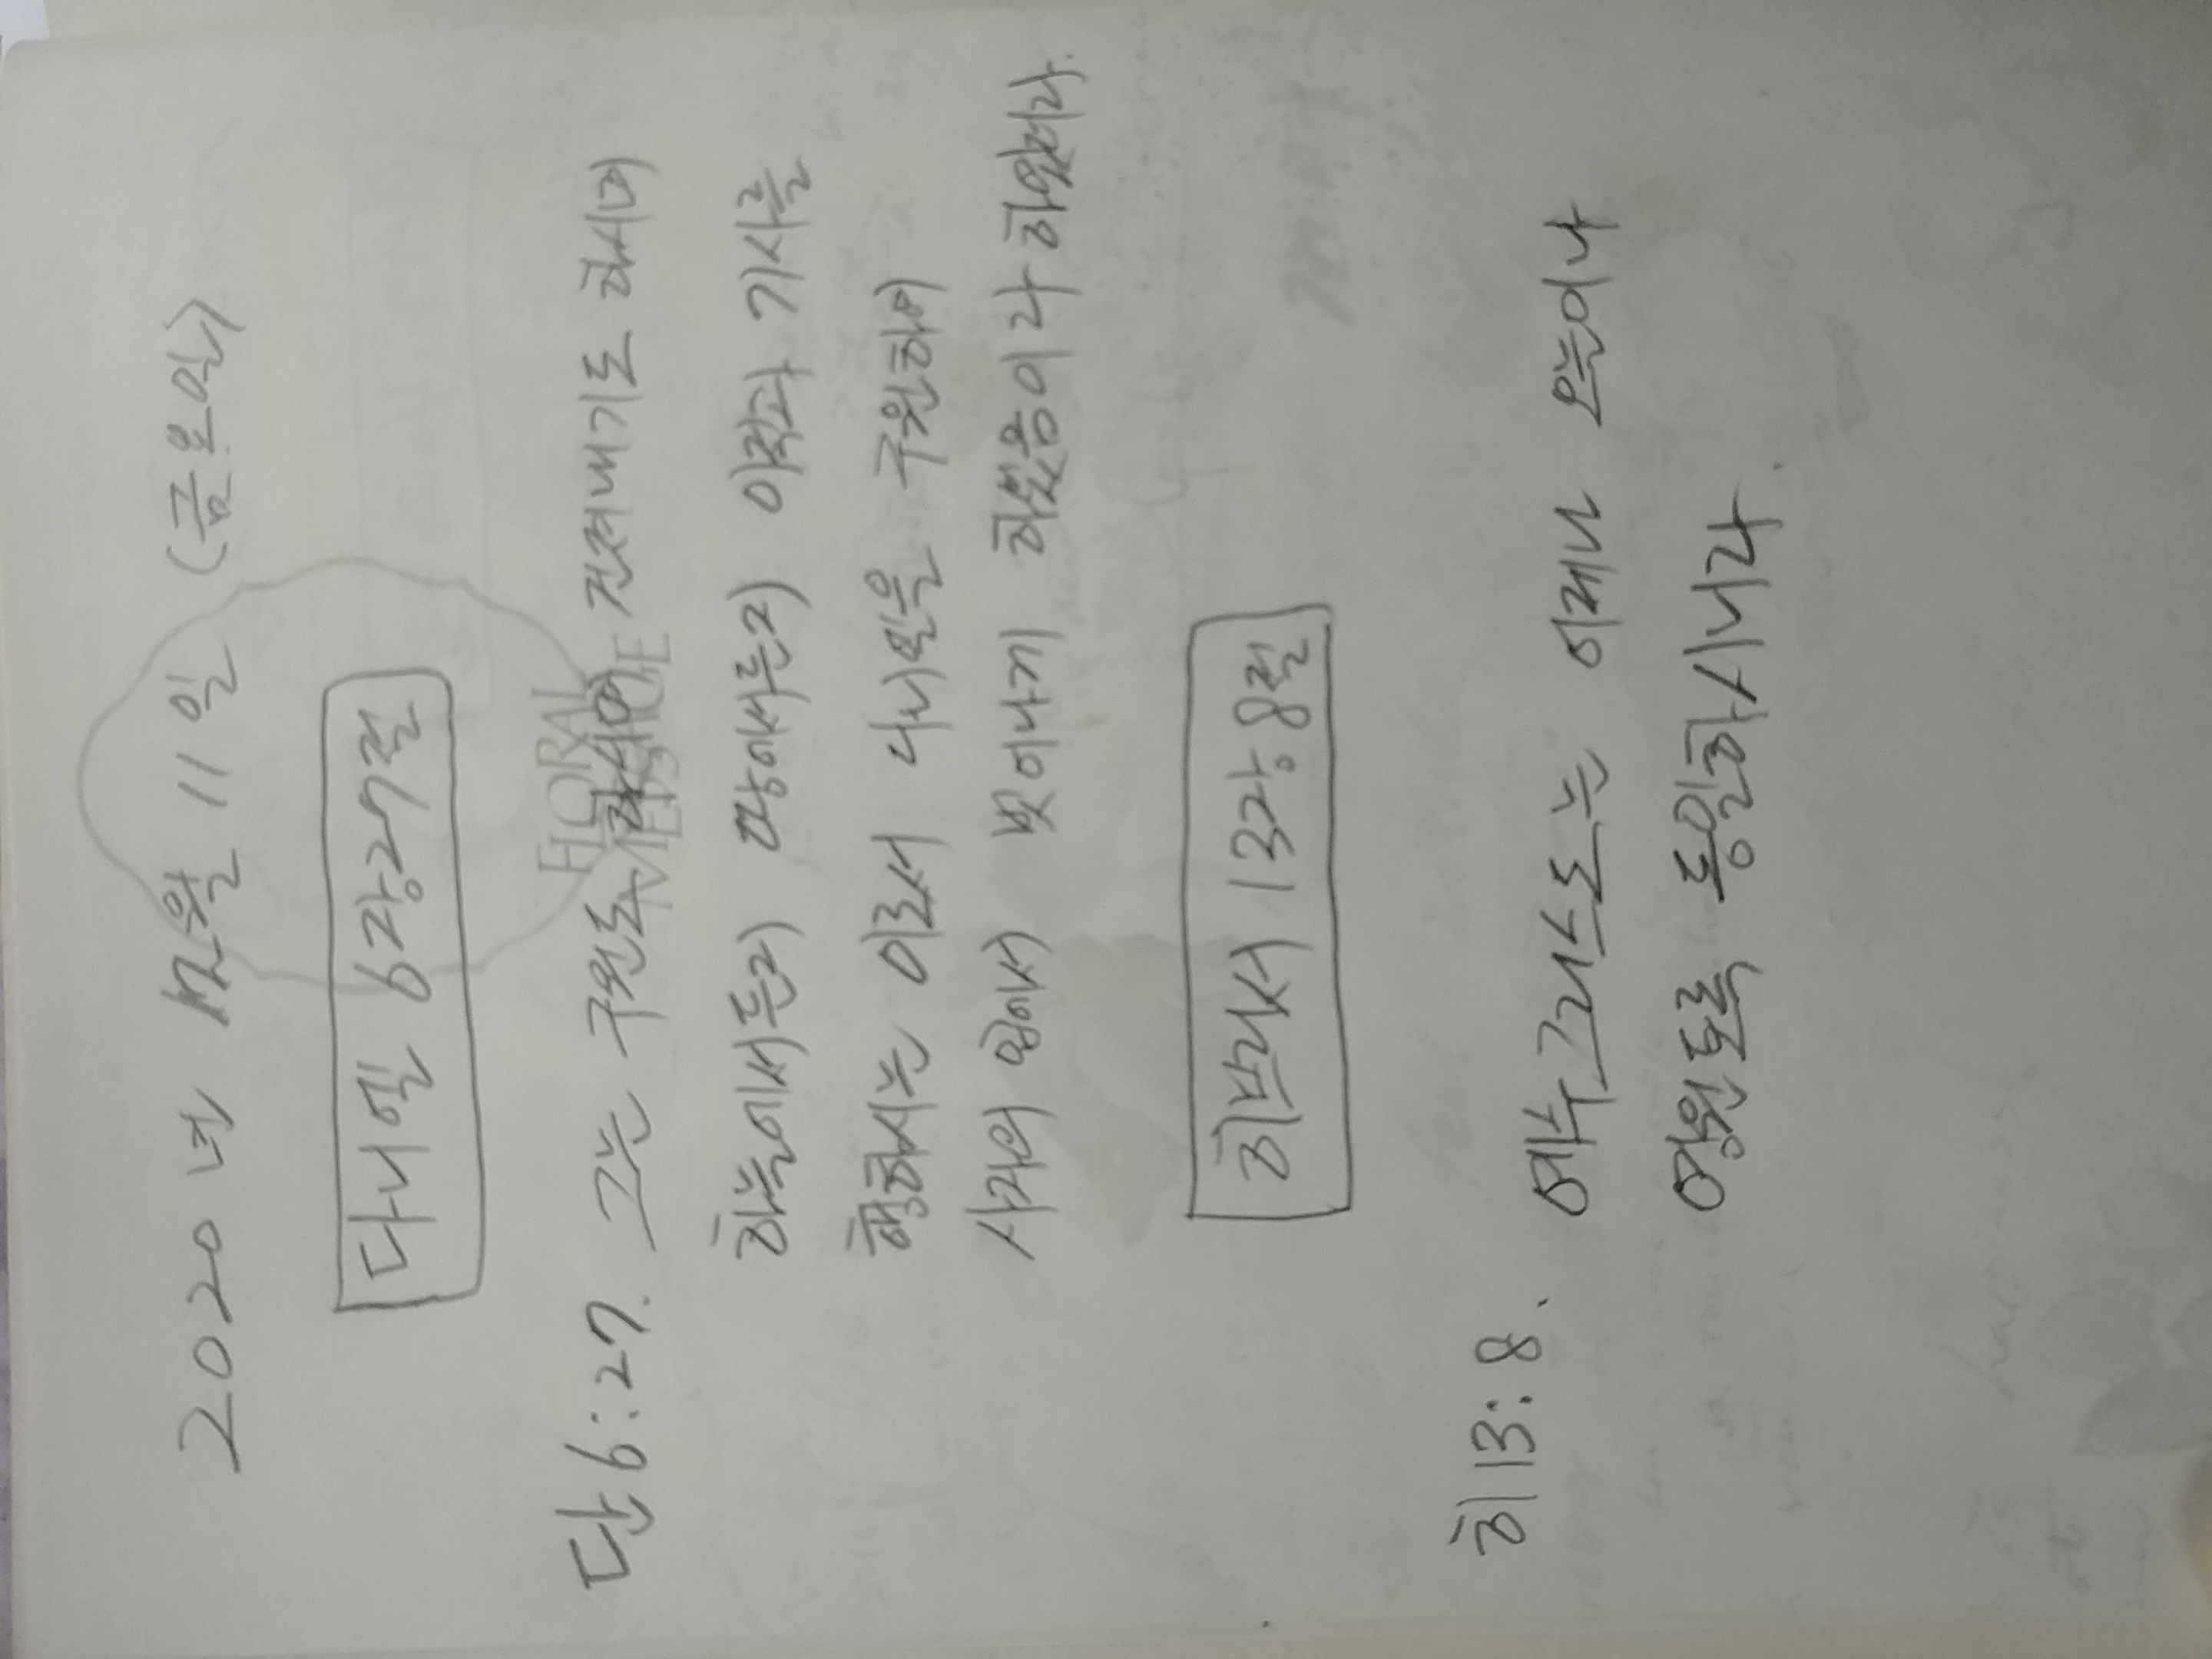 2020년 12월 11일 (금요일)
다니엘 6장27절
FLORAL
단6:27. 그는 구원도 하시며 건져내기도 하시며
하늘에서든지 땅에서든지 이적과 기사를
행하시는 이로서 다니엘을 구원하여
사자의 입에서 벗어나게 하셨음이라 하였더라.
히브리서 13장 8절
히13:8. 예수그리스도는 어제나 오늘이나
영원토록 동일하시니라.